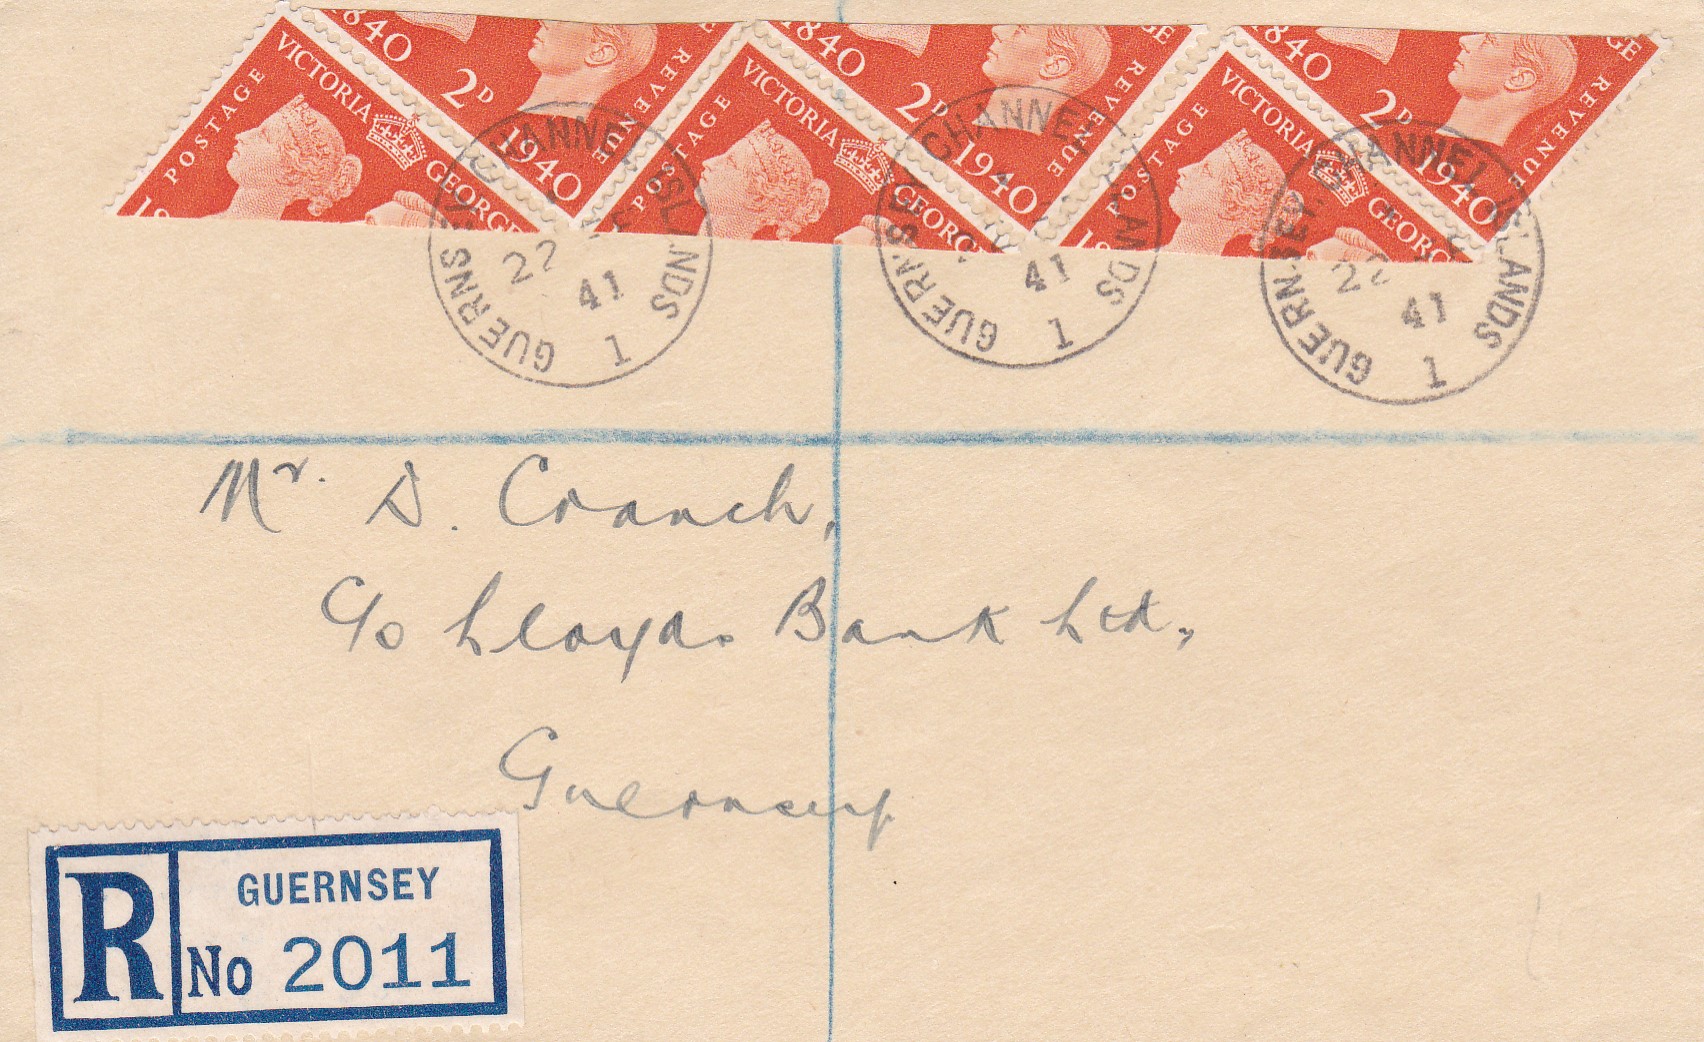 POSTAGE VICTORIA GEORGE
1840 2D 1940 REVENUE
POSTAGE VICTORIA GEORGE
1840 2D 1940 REVENUE
POSTAGE VICTORIA GEORG
1840 2D 1940 REVENUE
GUERNSEY CHANNEL ISLANDS
22
41
1
GUERNSEY CHANNEL ISLANDS
41
1
GUERNSEY CHANNEL ISLANDS
22
41
1
Mr. D. Cranch,
c/o Lloyds Bank Ltd,
Guernsey
R
GUERNSEY
No 2011